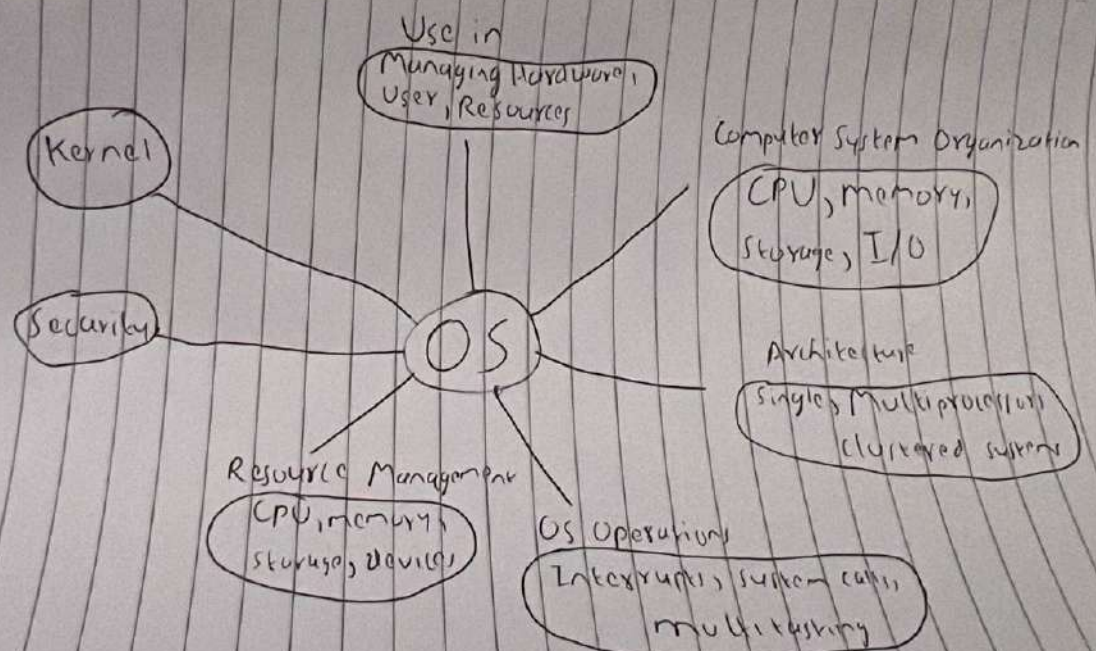 Use in
Managing Hardware,
User, Resources
Kernel
Computer System Organization
CPU, memory,
storage, I/O
Security
OS
Architecture
Single, Multiprocessor,
Clustered systems
Resource Management
CPU, memory,
storage, devices
OS Operations
Interrupts, system calls,
multitasking